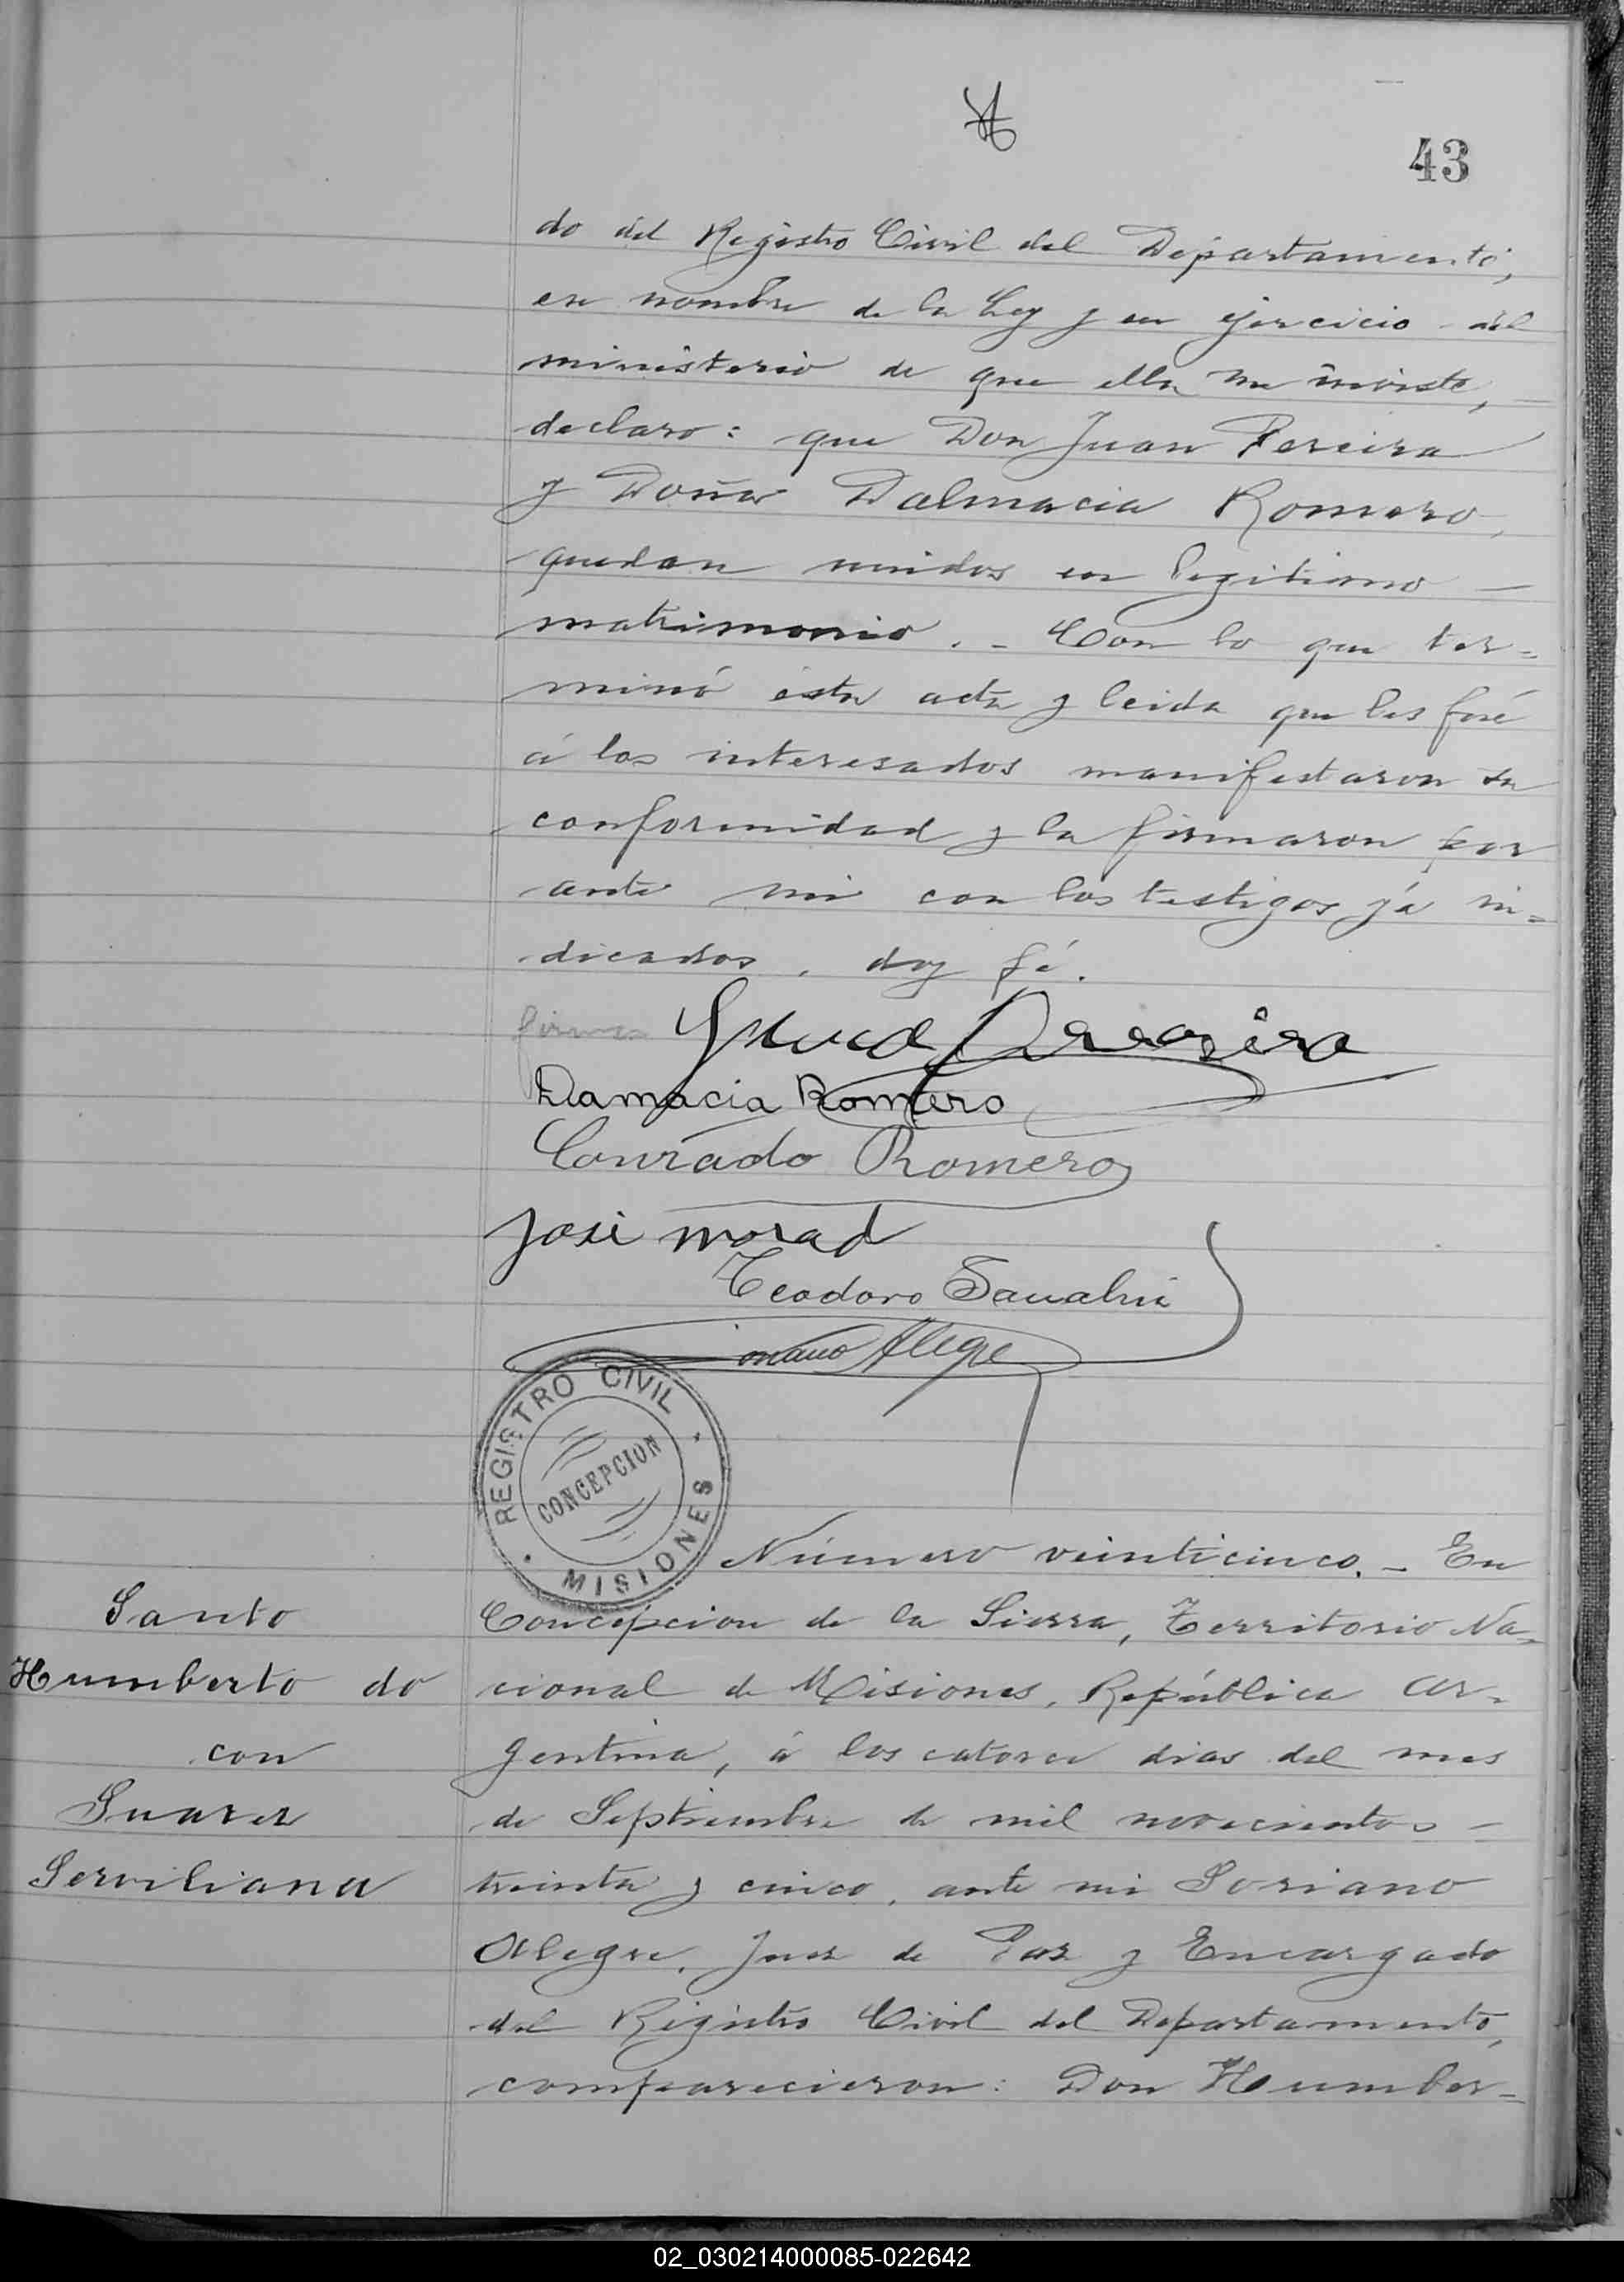 43
do del Registro Civil del Departamento,
en nombre de la Ley y en ejercicio del
ministerio de que ella me inviste,
declaro: que Don Juan Pereira
y Doña Dalmacia Romero,
quedan unidos en legitimo
matrimonio. - Con lo que ter=
minó ésta acta y leida que les fué
á los interesados manifestaron su
conformidad y la firmaron por
ante mi con los testigos yá in=
dicados, doy fé.
Juan Pereira
Damacia Romero
Conrado Romero
José morad
Teodoro
oriano Alegre
REGISTRO CIVIL
CONCEPCION
MISIONES
Número veinticinco. - En
Santo
Concepcion de la Sierra, Territorio Na=
Humberto do
cional de Misiones, República Ar-
con
gentina, á los catorce dias del mes
Suarez
de Septiembre de mil novecientos -
Serviliana
treinta y cinco, ante mi Soriano
Alegre, Juez de Paz y Encargado
del Registro Civil del Departamento,
comparecieron: Don Humber=
02_030214000085-022642